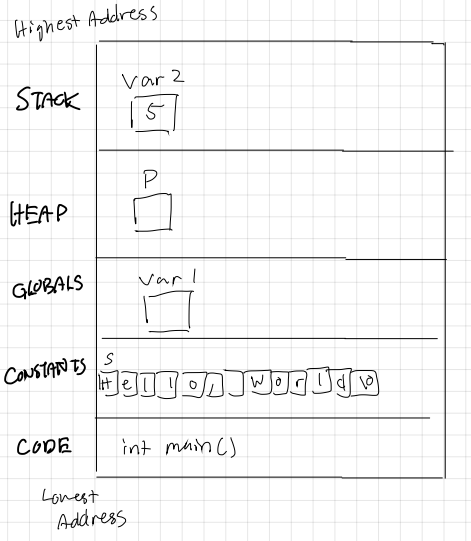 Highest Address
STACK
var 2
5
HEAP
P
GLOBALS
var 1
S
CONSTANTS
Hello, World\0
CODE
int main()
Lowest
Address